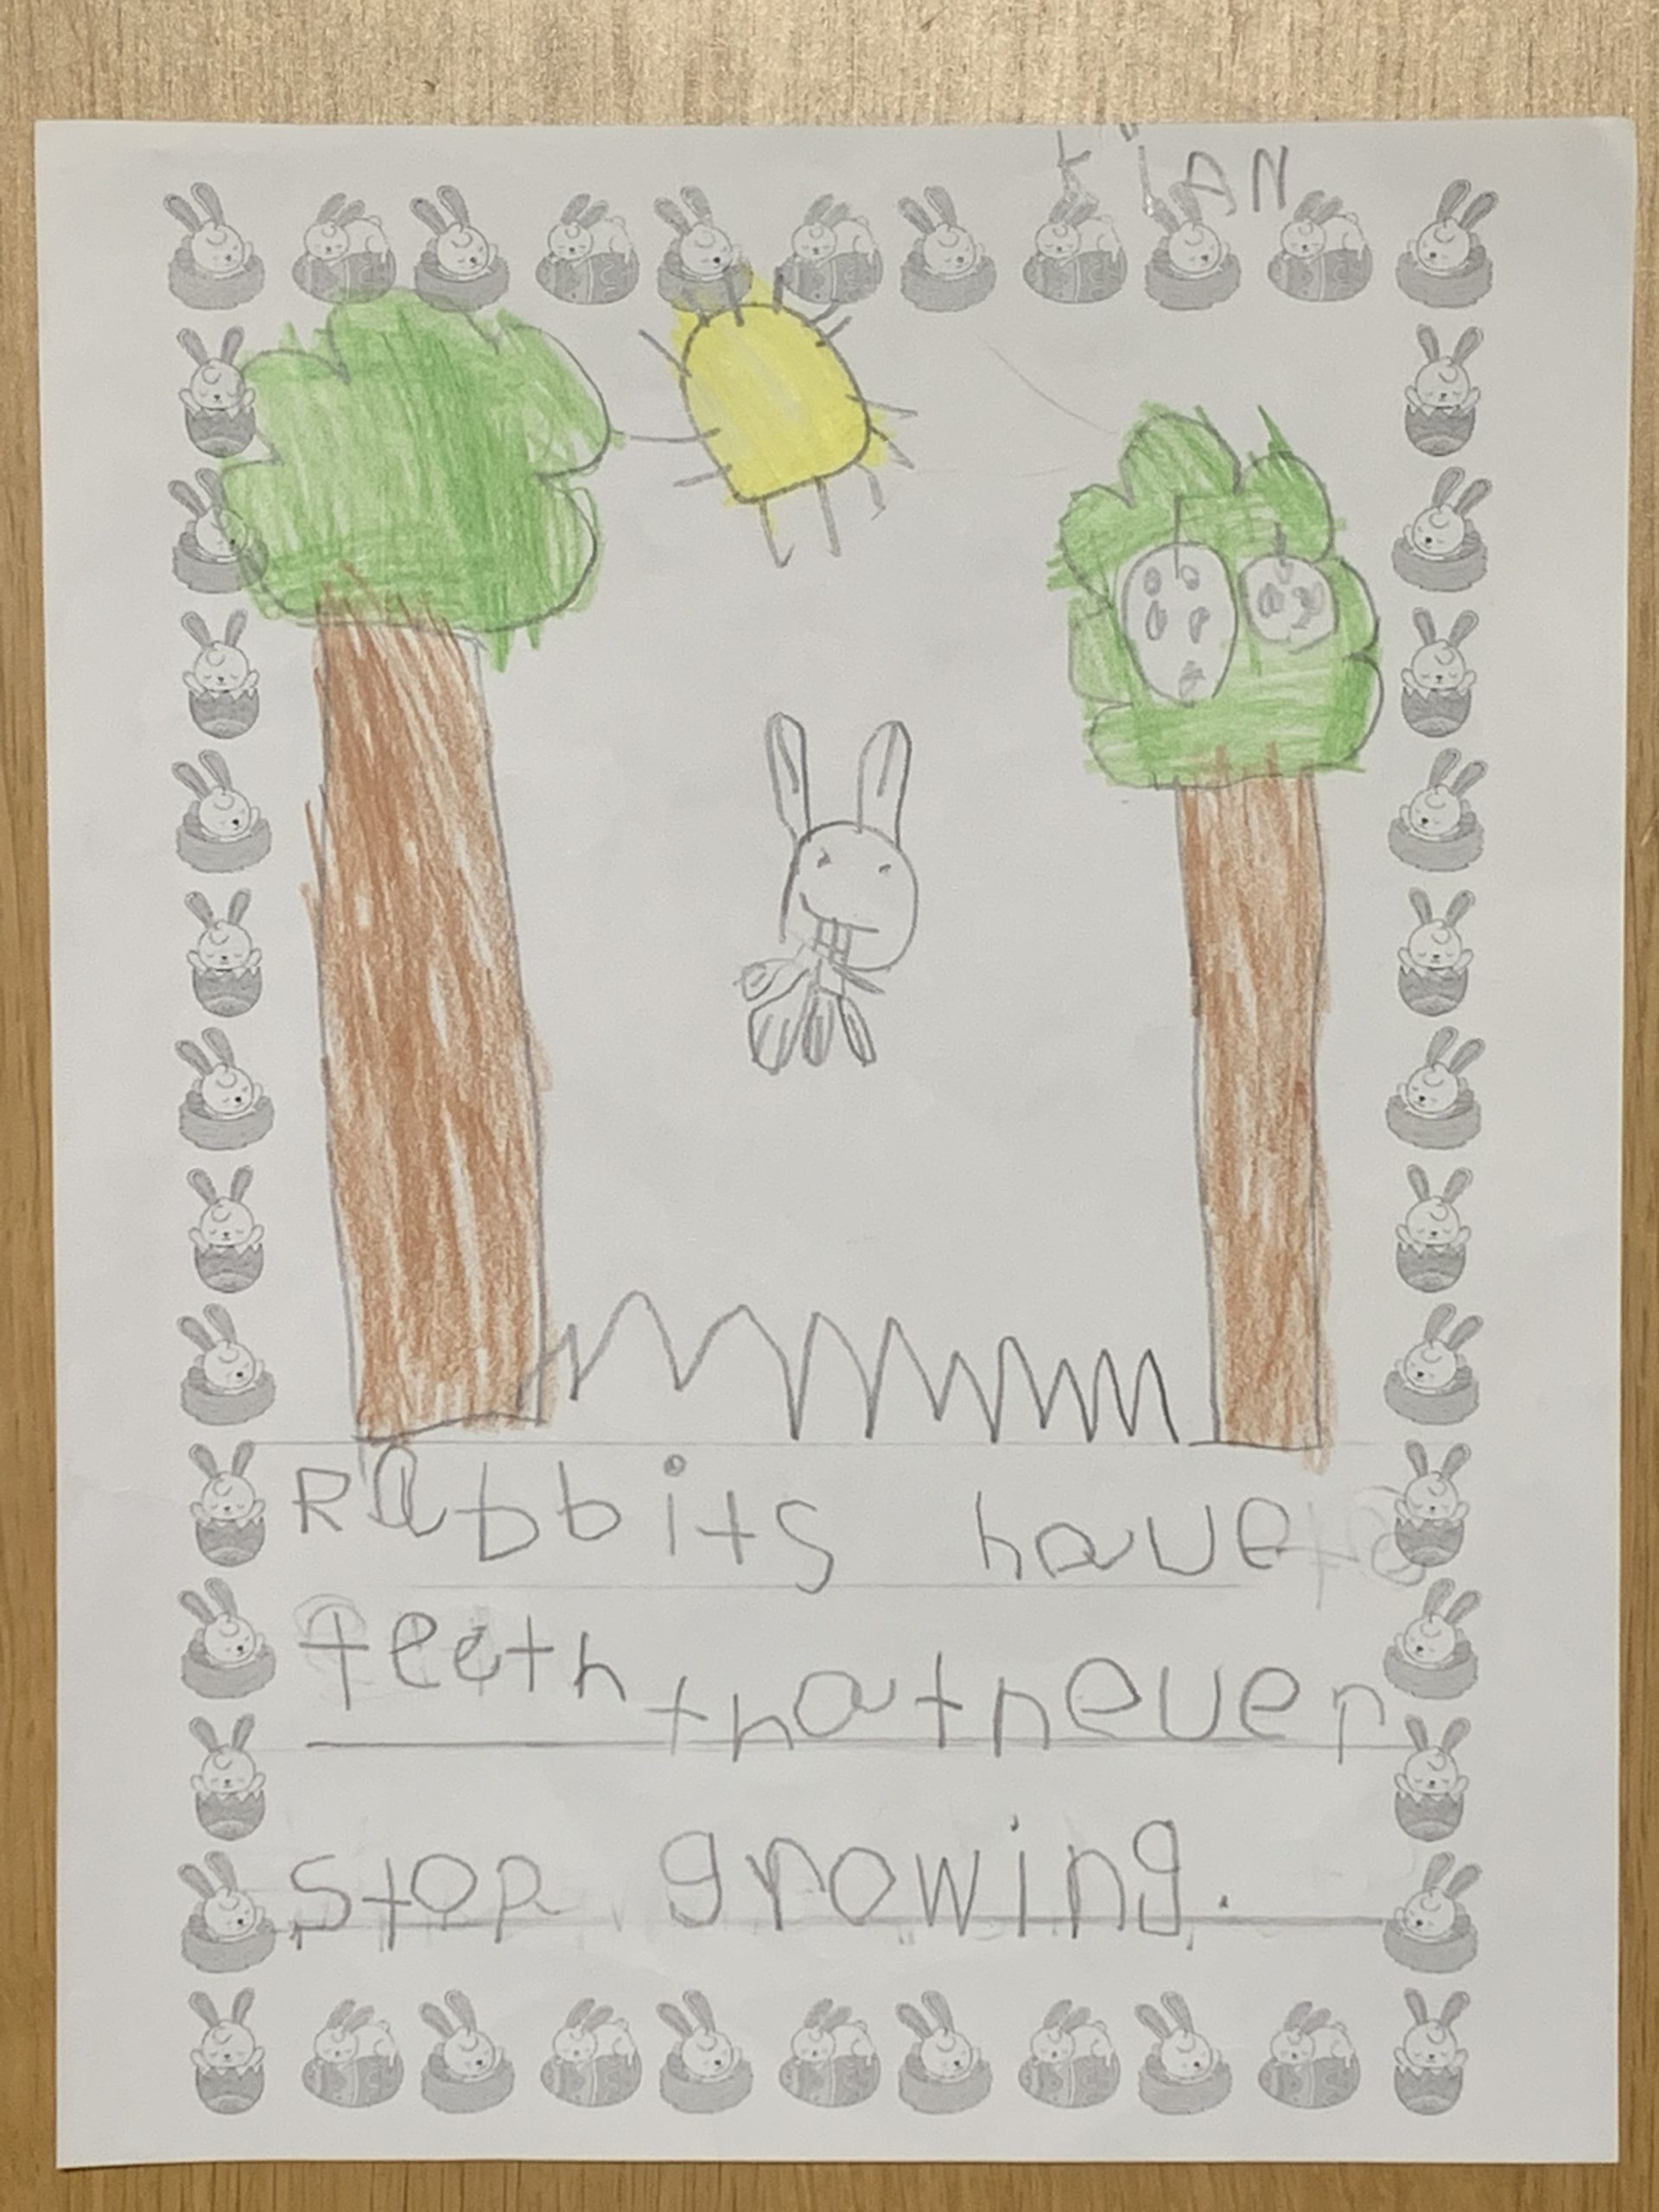 KiAN
Rabbits have
teeth that never
stop growing.